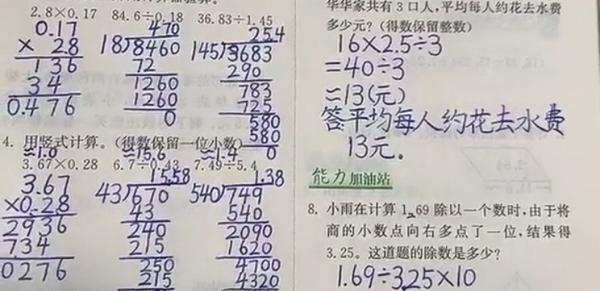 2.8×0.17 84.6÷0.18 36.83÷1.45
0.17
× 28
136
34
0.476
470
18)8460
72
1260
1260
0
25.4
145)3683
290
783
725
580
580
0
4. 用竖式计算。(得数保留一位小数)
≈1.0 ≈15.6 ≈1.4
3.67×0.28 6.7÷0.43 7.49÷5.4
3.67
×0.28
2936
734
0276
15.58
43)670
43
240
215
250
215
1.38
540)749
540
2090
1620
4700
4320
华华家共有 3 口人,平均每人约花去水费
多少元? (得数保留整数)
16×2.5÷3
=40÷3
≈13(元)
答平均每人约花去水费
13元.
能力加油站
8. 小雨在计算 1.69 除以一个数时,由于将
商的小数点向右多点了一位,结果得
3.25。这道题的除数是多少?
1.69÷3.25×10